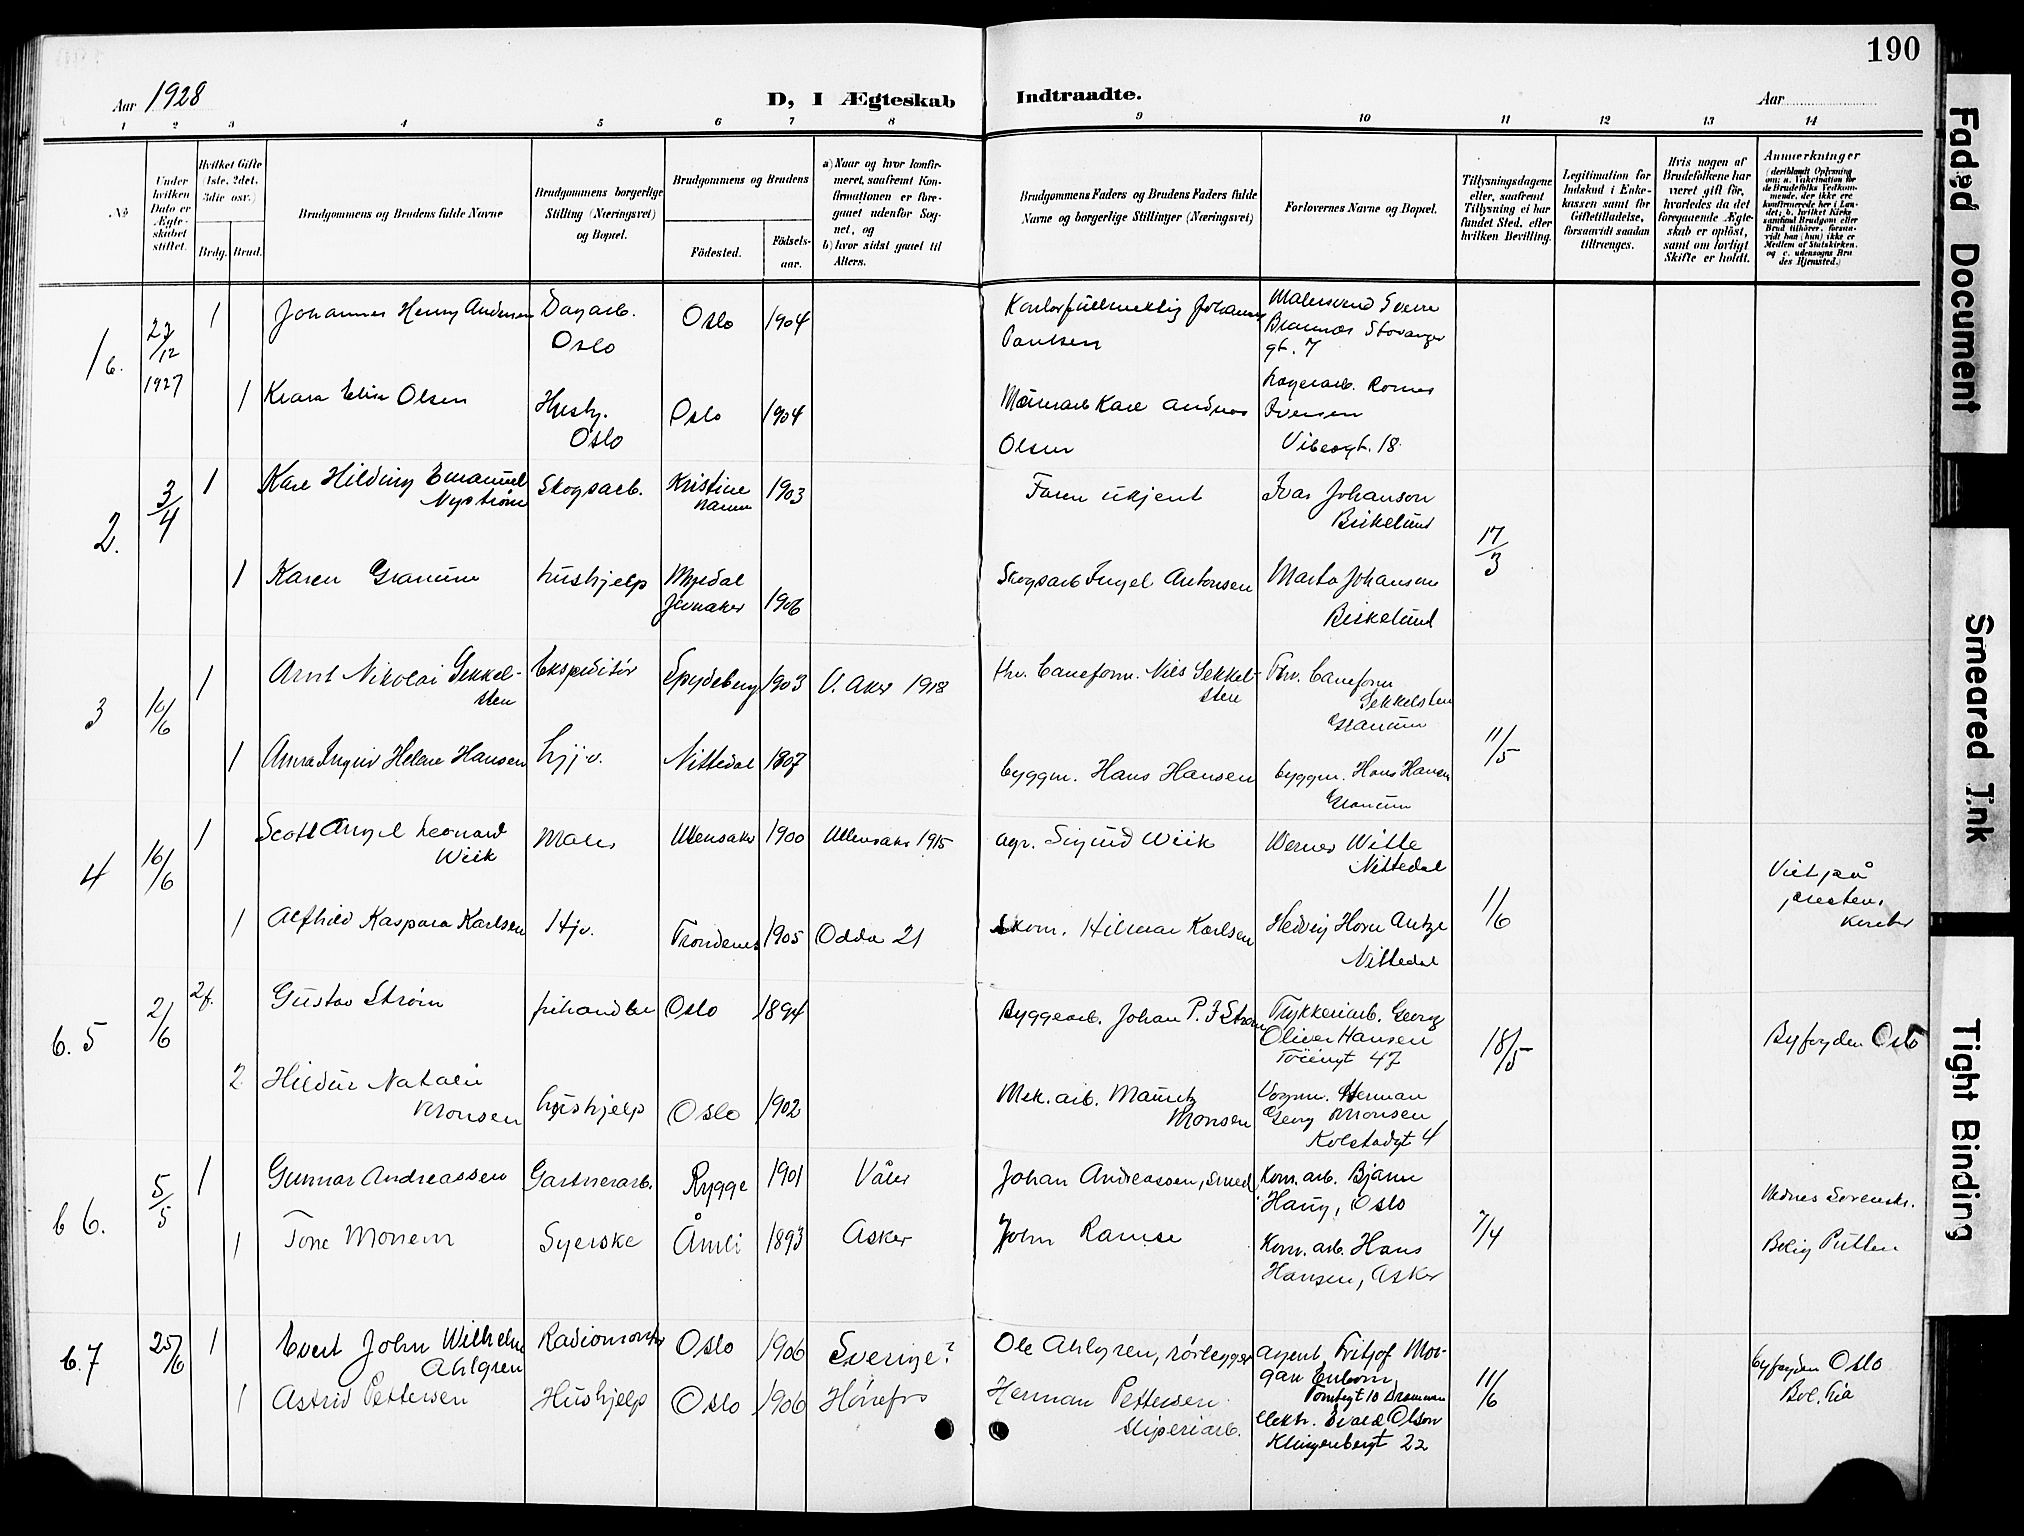 190
Aar 1928
D, I Ægteskab Indtraadte.
Aar
1 2 3 4 5 6 7 8 9 10 11 12 13 14
No
Under hvilken Dato er Ægteskabet stiftet.
Hvilket Gifte (1ste, 2det, 3die osv.)
Brdg. Brud.
Brudgommens og Brudens fulde Navne
Brudgommens borgerlige Stilling (Næringsvei) og Bopæl.
Brudgommens og Brudens
Födested.
Födsels-aar.
a) Naar og hvor konfirmeret, saafremt Konfirmationen er foregaaet udenfor Sognet, og
b) hvor sidst gaaet til Alters.
Brudgommens Faders og Brudens Faders fulde Navne og borgerlige Stillinger (Næringsvei)
Forlovernes Navne og Bopæl.
Tillysningsdagene eller, saafremt Tillysning ei har fundet Sted, efter hvilken Bevilling.
Legitimation for Indskud i Enkekassen samt for Giftetilladelse, forsaavidt saadan tiltrænges.
Hvis nogen af Brudefolkene har været gift för, hvorledes da det foregaaende Ægteskab er oplöst, samt om lovligt Skifte er holdt.
Anmerkninger
(deriblandt Oplysning om: a. Vakcination for de Brudefolks Vedkommende, der ikke ere konfirmerede her i Landet; b. hvilket Kirkesamfund Brudgom eller Brud tilhörer, forsaavidt han (hun) ikke er Medlem af Statskirken, og c. udensogns Brudes Hjemsted.)
1 b.
27/12 1927
1
Johannes Henny Andersen
Dagarb. Oslo
Oslo
1904
Johannes Paulsen
Stavanger gt. 7
1
Klara Elise Olsen
Hushj. Oslo
Oslo
1904
Karl Andreas Olsen
Iversen
18
2.
3/4
1
Karl Hilding Emanuel Nystrøm
Skogsarb.
Kristine hamn
1903
Faren ukjent
Ivar Johanson Birkelund
17/3
1
Karen Granum
hushjelp
Jevnaker
1906
Skogsarb Engel Antonsen
Marta Johanson Birkelund
3
1
Arnt Nikolai Sekkelsten
Ekspeditør
Spydeberg
1903
V. Aker 1918
Nils Sekkelsten
Sekkelsten Granum
11/5
1
Anna Ingrid Helene Hansen
hjv.
Nittedal
1807
byggm. Hans Hansen
byggm. Hans Hansen Granum
4
16/6
1
Scott Angel Leonard Wiik
Maler
Ullensaker
1900
Ullensaker 1915
agr. Sigurd Wiik
Werner Witte Nittedal
1/6
1
Alfhild Kaspara Karlsen
Hjv.
Trondenes
1905
Odda 21
Hilmar Karlsen
Hedvig Horn Antze Nittedal
Viet på prestens kontor
b. 5
2/6
2 f.
Gustav Strøm
frihandler
Oslo
1894
Byggearb. Johan P. F Strøm
Trykkeriarb. Georg Oliver Hansen
47
18/5
Byfogden Oslo
2
Hildur Natalie Monsen
hushjelp
Oslo
1902
Mek. arb. Mauritz Monsen
Vognm. Herman Georg Monsen
Kolstadgt 4
b 6.
5/5
1
Gunnar Andreassen
Gartnerarb.
Rygge
1901
Våler
Johan Andreassen, smed
Kom. arb. Bjarne Haug, Oslo
7/4
Nednes Sorenskr.
1
Tone Monem
Syerske
Åmli
1893
Asker
John Ramse
Kom. arb. Hans Hansen, Asker
Bolig Putten
b. 7
25/6
1
Evert John Wilhelm Ahlgren
Radiomontør
Oslo
1906
Sverige?
Ole Ahlgren, rørlegger
agent Fritjof Morgan Enbom,
Tomtegt 10 Drammen
11/6
byfogden Oslo
Bol. Lia
1
Astrid Pettersen
Hushjelp
Oslo
1906
Hønefos
Herman Pettersen sliperiarb.
elektr. Evald Olson
Klingenbergt 22
Faded Document
Smeared Ink
Tight Binding